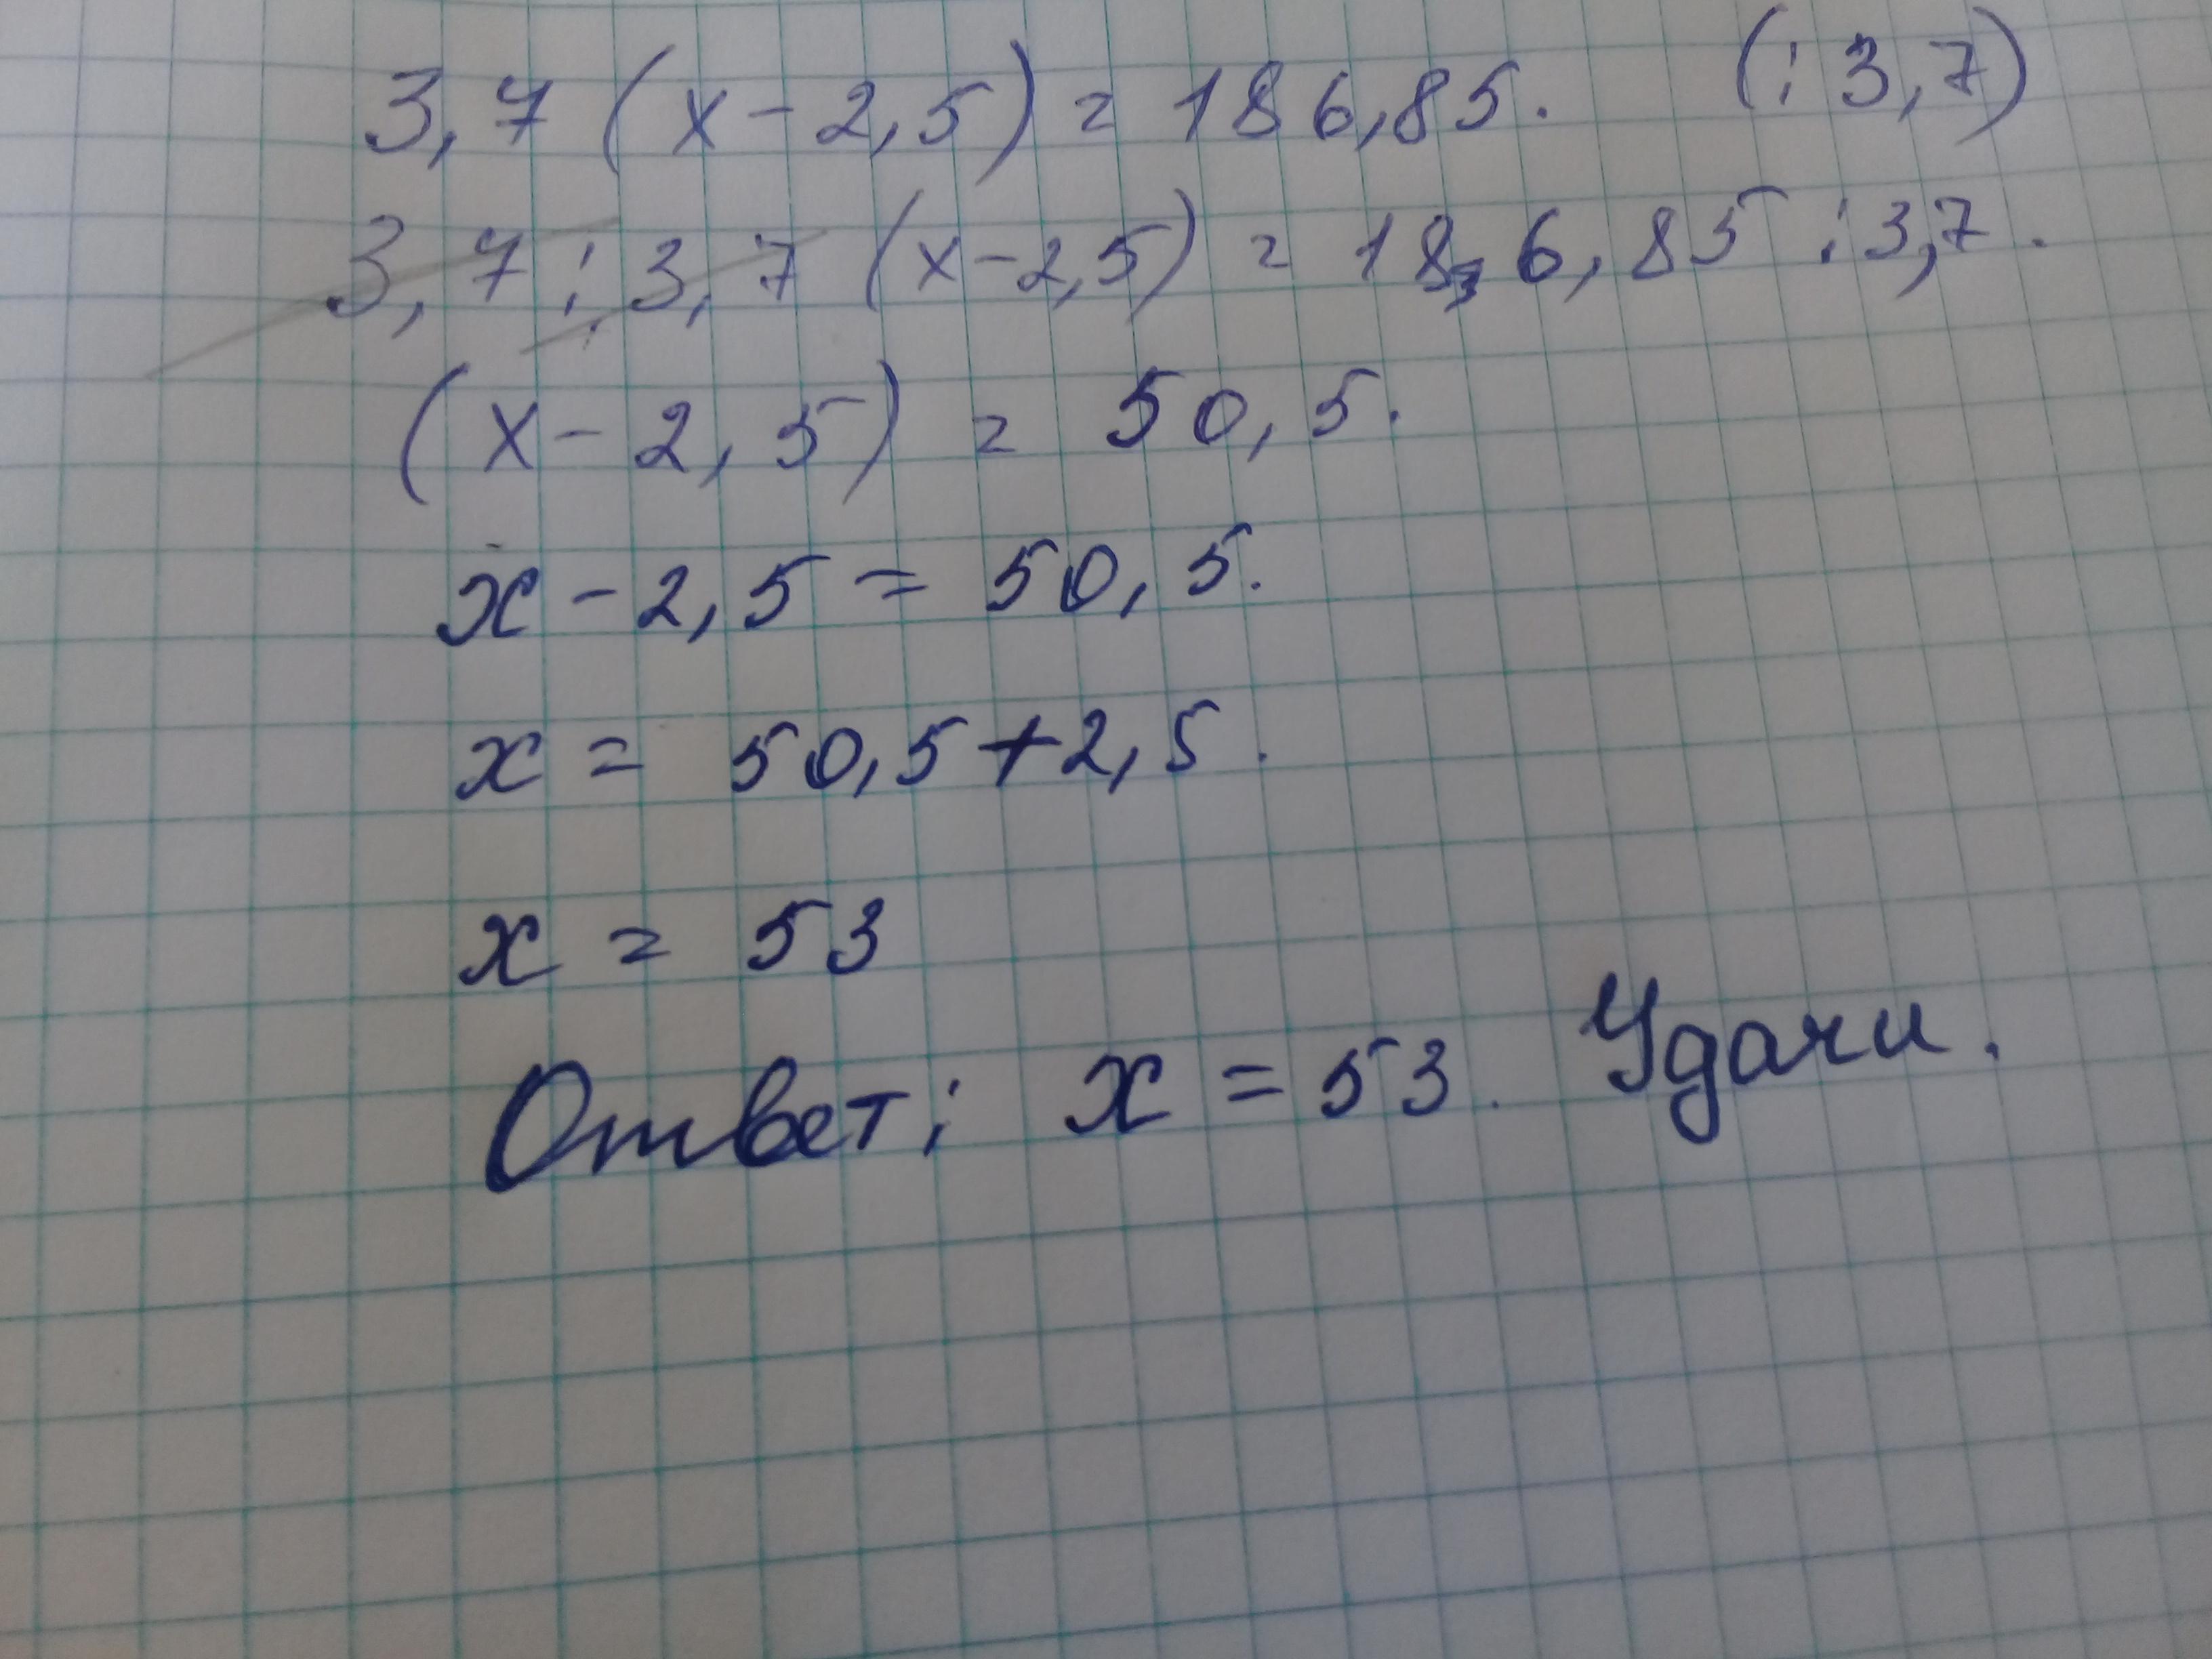 3,7 (x - 2,5) = 186,85. (: 3,7)
3,7 : 3,7 (x - 2,5) = 186,85 : 3,7.
(x - 2,5) = 50,5.
x - 2,5 = 50,5.
x = 50,5 + 2,5.
x = 53
Ответ: x = 53. Удачи.